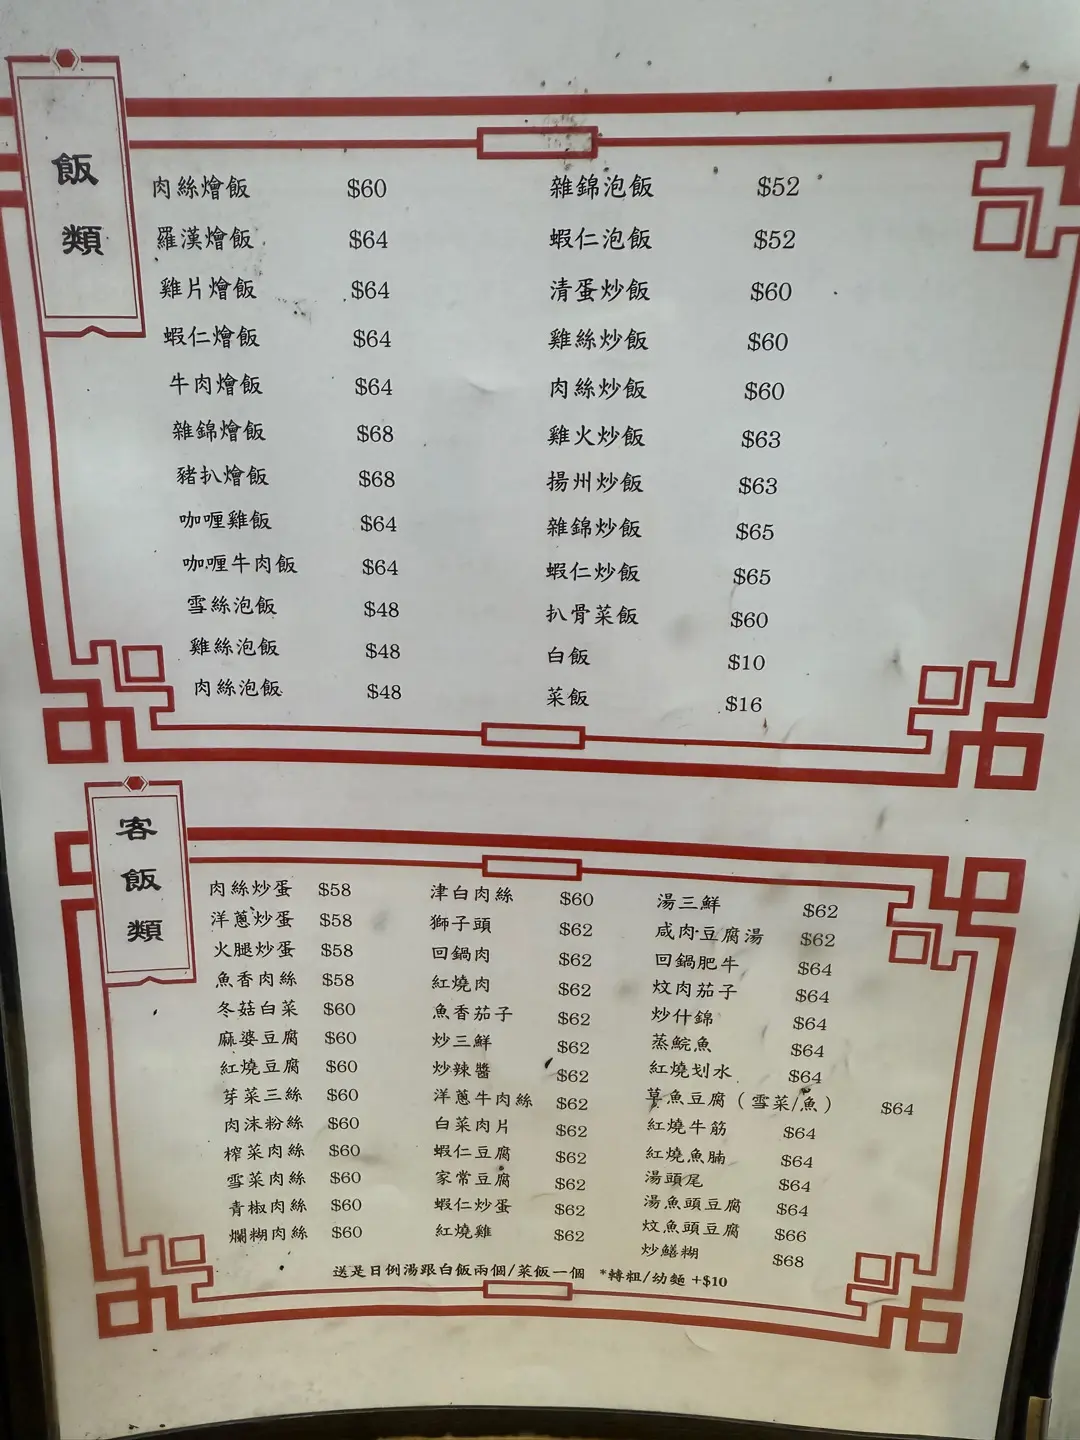 飯類
肉絲燴飯 $60
羅漢燴飯 $64
雞片燴飯 $64
蝦仁燴飯 $64
牛肉燴飯 $64
雜錦燴飯 $68
豬扒燴飯 $68
咖喱雞飯 $64
咖喱牛肉飯 $64
雪絲泡飯 $48
雞絲泡飯 $48
肉絲泡飯 $48
雜錦泡飯 $52
蝦仁泡飯 $52
清蛋炒飯 $60
雞絲炒飯 $60
肉絲炒飯 $60
雞火炒飯 $63
揚州炒飯 $63
雜錦炒飯 $65
蝦仁炒飯 $65
扒骨菜飯 $60
白飯 $10
菜飯 $16
客飯類
肉絲炒蛋 $58
洋蔥炒蛋 $58
火腿炒蛋 $58
魚香肉絲 $58
冬菇白菜 $60
麻婆豆腐 $60
紅燒豆腐 $60
芽菜三絲 $60
肉沫粉絲 $60
榨菜肉絲 $60
雪菜肉絲 $60
青椒肉絲 $60
爛糊肉絲 $60
津白肉絲 $60
獅子頭 $62
回鍋肉 $62
紅燒肉 $62
魚香茄子 $62
炒三鮮 $62
炒辣醬 $62
洋蔥牛肉絲 $62
白菜肉片 $62
蝦仁豆腐 $62
家常豆腐 $62
蝦仁炒蛋 $62
紅燒雞 $62
湯三鮮 $62
咸肉豆腐湯 $62
回鍋肥牛 $64
炆肉茄子 $64
炒什錦 $64
蒸鯇魚 $64
紅燒划水 $64
草魚豆腐（雪菜/魚） $64
紅燒牛筋 $64
紅燒魚腩 $64
湯頭尾 $64
湯魚頭豆腐 $64
炆魚頭豆腐 $66
炒鱔糊 $68
送是日例湯跟白飯兩個/菜飯一個 *轉粗/幼麵 +$10